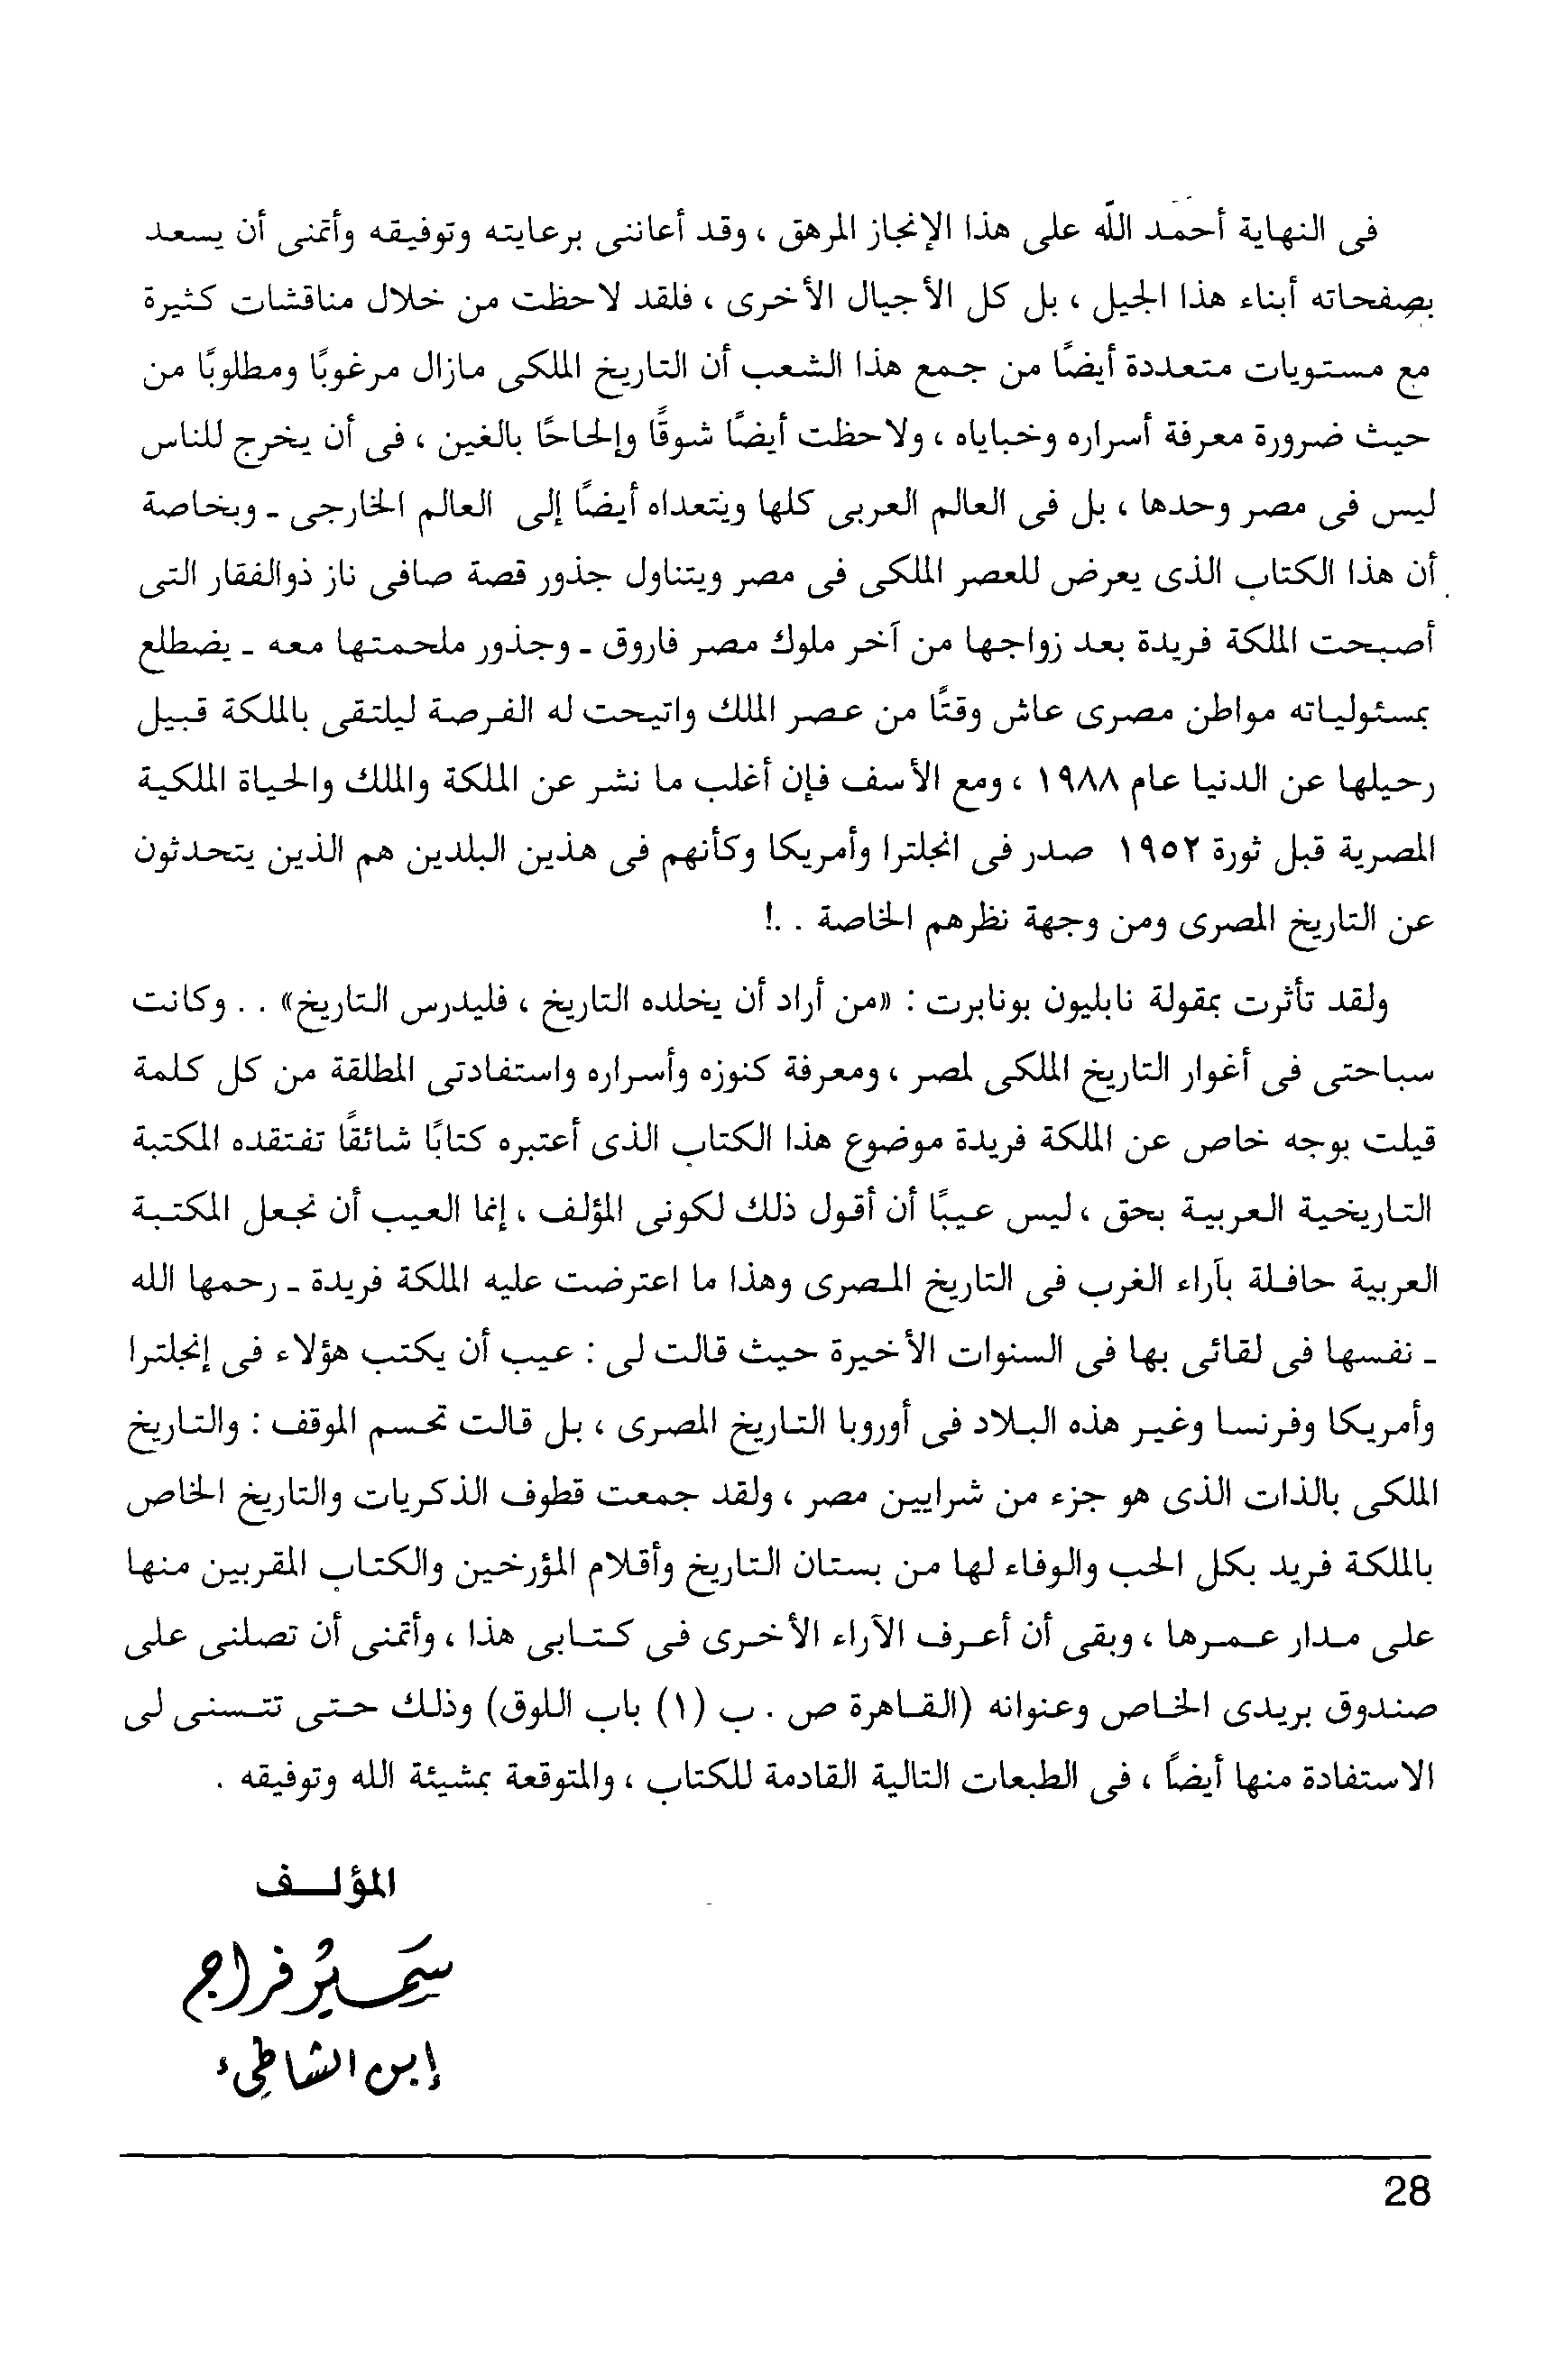 فى النهاية أحمَد اللَّه على هذا الإنجاز المرهق ، وقد أعاننى برعايته وتوفيقه وأتمنى أن يسعد
بصفحاته أبناء هذا الجيل ، بل كل الأجيال الأخرى ، فلقد لاحظت من خلال مناقشات كثيرة
مع مستويات متعددة أيضًا من جمع هذا الشعب أن التاريخ الملكى مازال مرغوبًا ومطلوبًا من
حيث ضرورة معرفة أسراره وخباياه ، ولاحظت أيضًا شوقًا وإلحاحًا بالغين ، فى أن يخرج للناس
ليس فى مصر وحدها ، بل فى العالم العربى كلها ويتعداه أيضًا إلى العالم الخارجى - وبخاصة
أن هذا الكتاب الذى يعرض للعصر الملكى فى مصر ويتناول جذور قصة صافى ناز ذوالفقار التى
أصبحت الملكة فريدة بعد زواجها من آخر ملوك مصر فاروق - وجذور ملحمتها معه - يضطلع
بمسئولياته مواطن مصرى عاش وقتًا من عصر الملك واتيحت له الفرصة ليلتقى بالملكة قبيل
رحيلها عن الدنيا عام ١٩٨٨ ، ومع الأسف فإن أغلب ما نشر عن الملكة والملك والحياة الملكية
المصرية قبل ثورة ١٩٥٢ صدر فى انجلترا وأمريكا وكأنهم فى هذين البلدين هم الذين يتحدثون
عن التاريخ المصرى ومن وجهة نظرهم الخاصة . .!
ولقد تأثرت بمقولة نابليون بونابرت : «من أراد أن يخلده التاريخ ، فليدرس التاريخ» . . وكانت
سباحتى فى أغوار التاريخ الملكى لمصر ، ومعرفة كنوزه وأسراره واستفادتى المطلقة من كل كلمة
قيلت بوجه خاص عن الملكة فريدة موضوع هذا الكتاب الذى أعتبره كتابًا شائقًا تفتقده المكتبة
التاريخية العربية بحق ، ليس عيبًا أن أقول ذلك لكونى المؤلف ، إنما العيب أن نجعل المكتبة
العربية حافلة بآراء الغرب فى التاريخ المصرى وهذا ما اعترضت عليه الملكة فريدة - رحمها الله
- نفسها فى لقائى بها فى السنوات الأخيرة حيث قالت لى : عيب أن يكتب هؤلاء فى إنجلترا
وأمريكا وفرنسا وغير هذه البلاد فى أوروبا التاريخ المصرى ، بل قالت تحسم الموقف : والتاريخ
الملكى بالذات الذى هو جزء من شرايين مصر ، ولقد جمعت قطوف الذكريات والتاريخ الخاص
بالملكة فريد بكل الحب والوفاء لها من بستان التاريخ وأقلام المؤرخين والكتاب المقربين منها
على مدار عمرها ، وبقى أن أعرف الآراء الأخرى فى كتابى هذا ، وأتمنى أن تصلنى على
صندوق بريدى الخاص وعنوانه (القاهرة ص . ب (١) باب اللوق) وذلك حتى تتسنى لى
الاستفادة منها أيضًا ، فى الطبعات التالية القادمة للكتاب ، والمتوقعة بمشيئة الله وتوفيقه .
المؤلف
سَميُر فراج
إبن الشاطىء
28